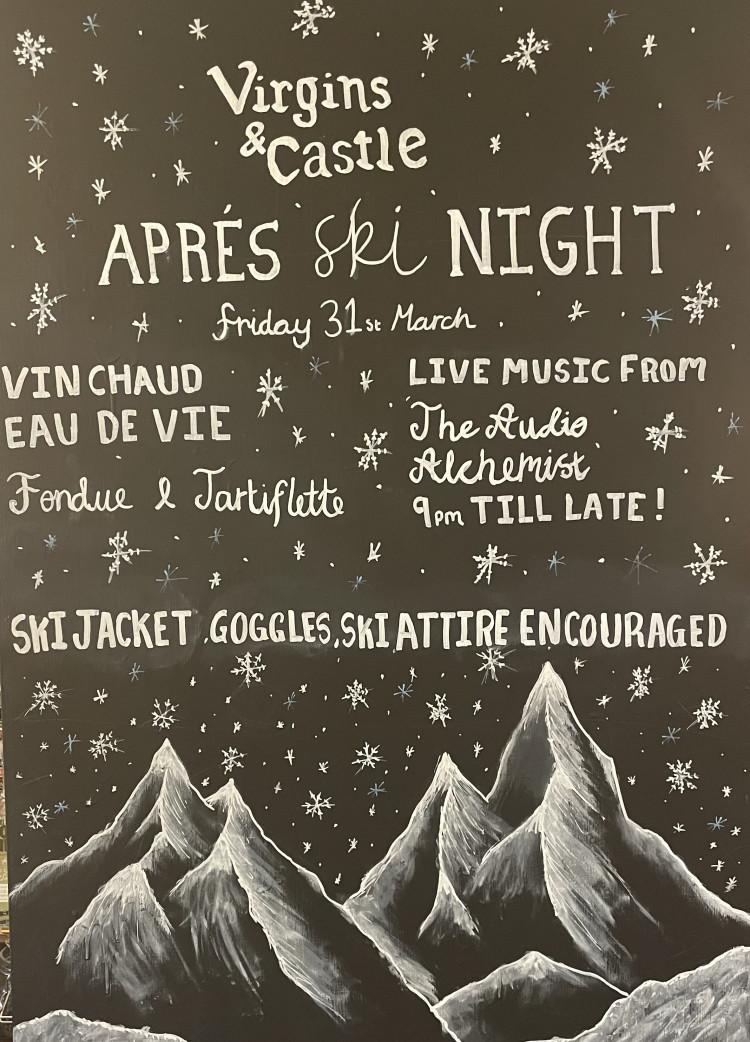 Virgins
& Castle
APRÉS ski NIGHT
Friday 31st March
VIN CHAUD
EAU DE VIE
Fondue & Tartiflette
LIVE MUSIC FROM
The Audio
Alchemist
9pm TILL LATE!
SKI JACKET, GOGGLES, SKI ATTIRE ENCOURAGED